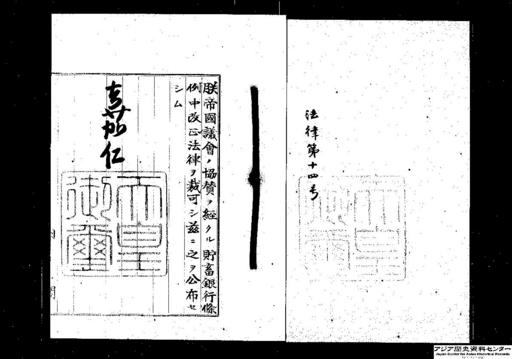 法律第十四号
朕帝國議會ノ協賛ヲ經タル貯蓄銀行條
例中改正法律ヲ裁可シ茲ニ之ヲ公布セ
シム
嘉仁
天皇
御璽
内
閣
アジア歴史資料センター
Japan Center for Asian Historical Records